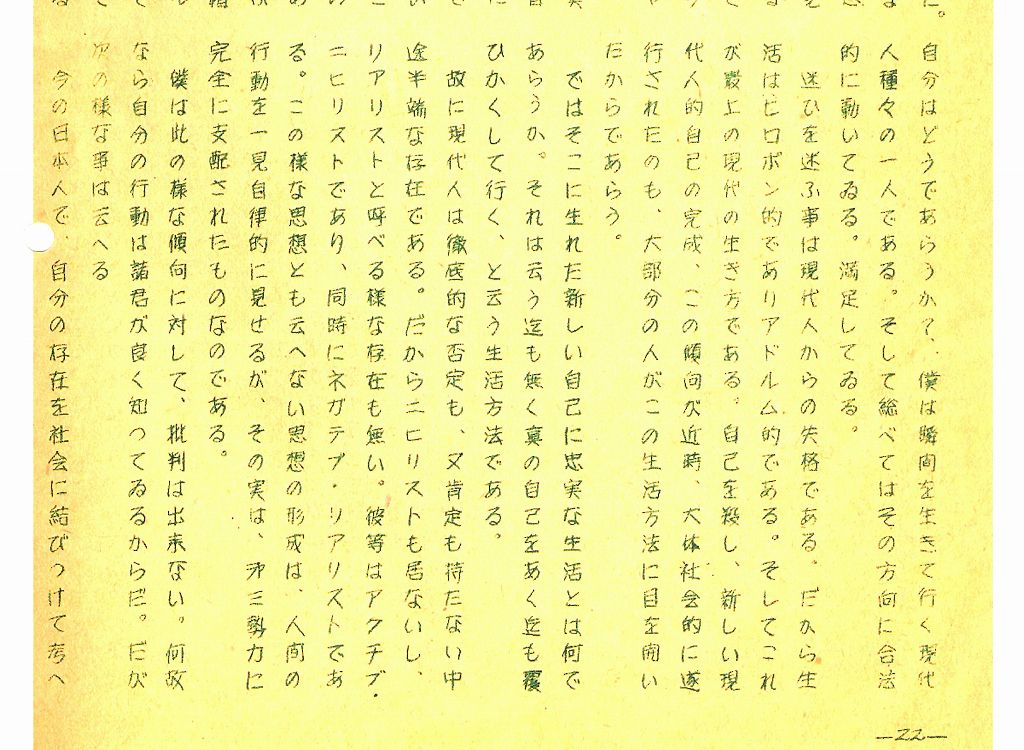 自分はどうであらうか?、僕は瞬間を生きて行く現代
人種々の一人である。そして総べてはその方向に合法
的に動いてゐる。満足してゐる。
迷ひを迷ふ事は現代人からの失格である。だから生
活はヒロポン的でありアドルム的である。そしてこれ
が最上の現代の生き方である。自己を殺し、新しい現
代人的自己の完成、この傾向が近時、大体社会的に遂
行されたのも、大部分の人がこの生活方法に目を開い
だからであらう。
ではそこに生れた新しい自己に忠実な生活とは何で
あらうか。それは云う迄も無く真の自己をあく迄も覆
ひかくして行く、と云う生活方法である。
故に現代人は徹底的な否定も、又肯定も持たない中
途半端な存在である。だからニヒリストも居ないし、
リアリストと呼べる様な存在も無い。彼等はアクチブ・
ニヒリストであり、同時にネガテブ・リアリストであ
る。この様な思想とも云へない思想の形成は、人間の
行動を一見自律的に見せるが、その実は、才三勢力に
完全に支配されたものなのである。
僕は此の様な傾向に対して、批判は出来ない。何故
なら自分の行動は諸君が良く知ってゐるからだ。だが
次の様な事は云へる
今の日本人で、自分の存在を社会に結びつけて考へ
—22—